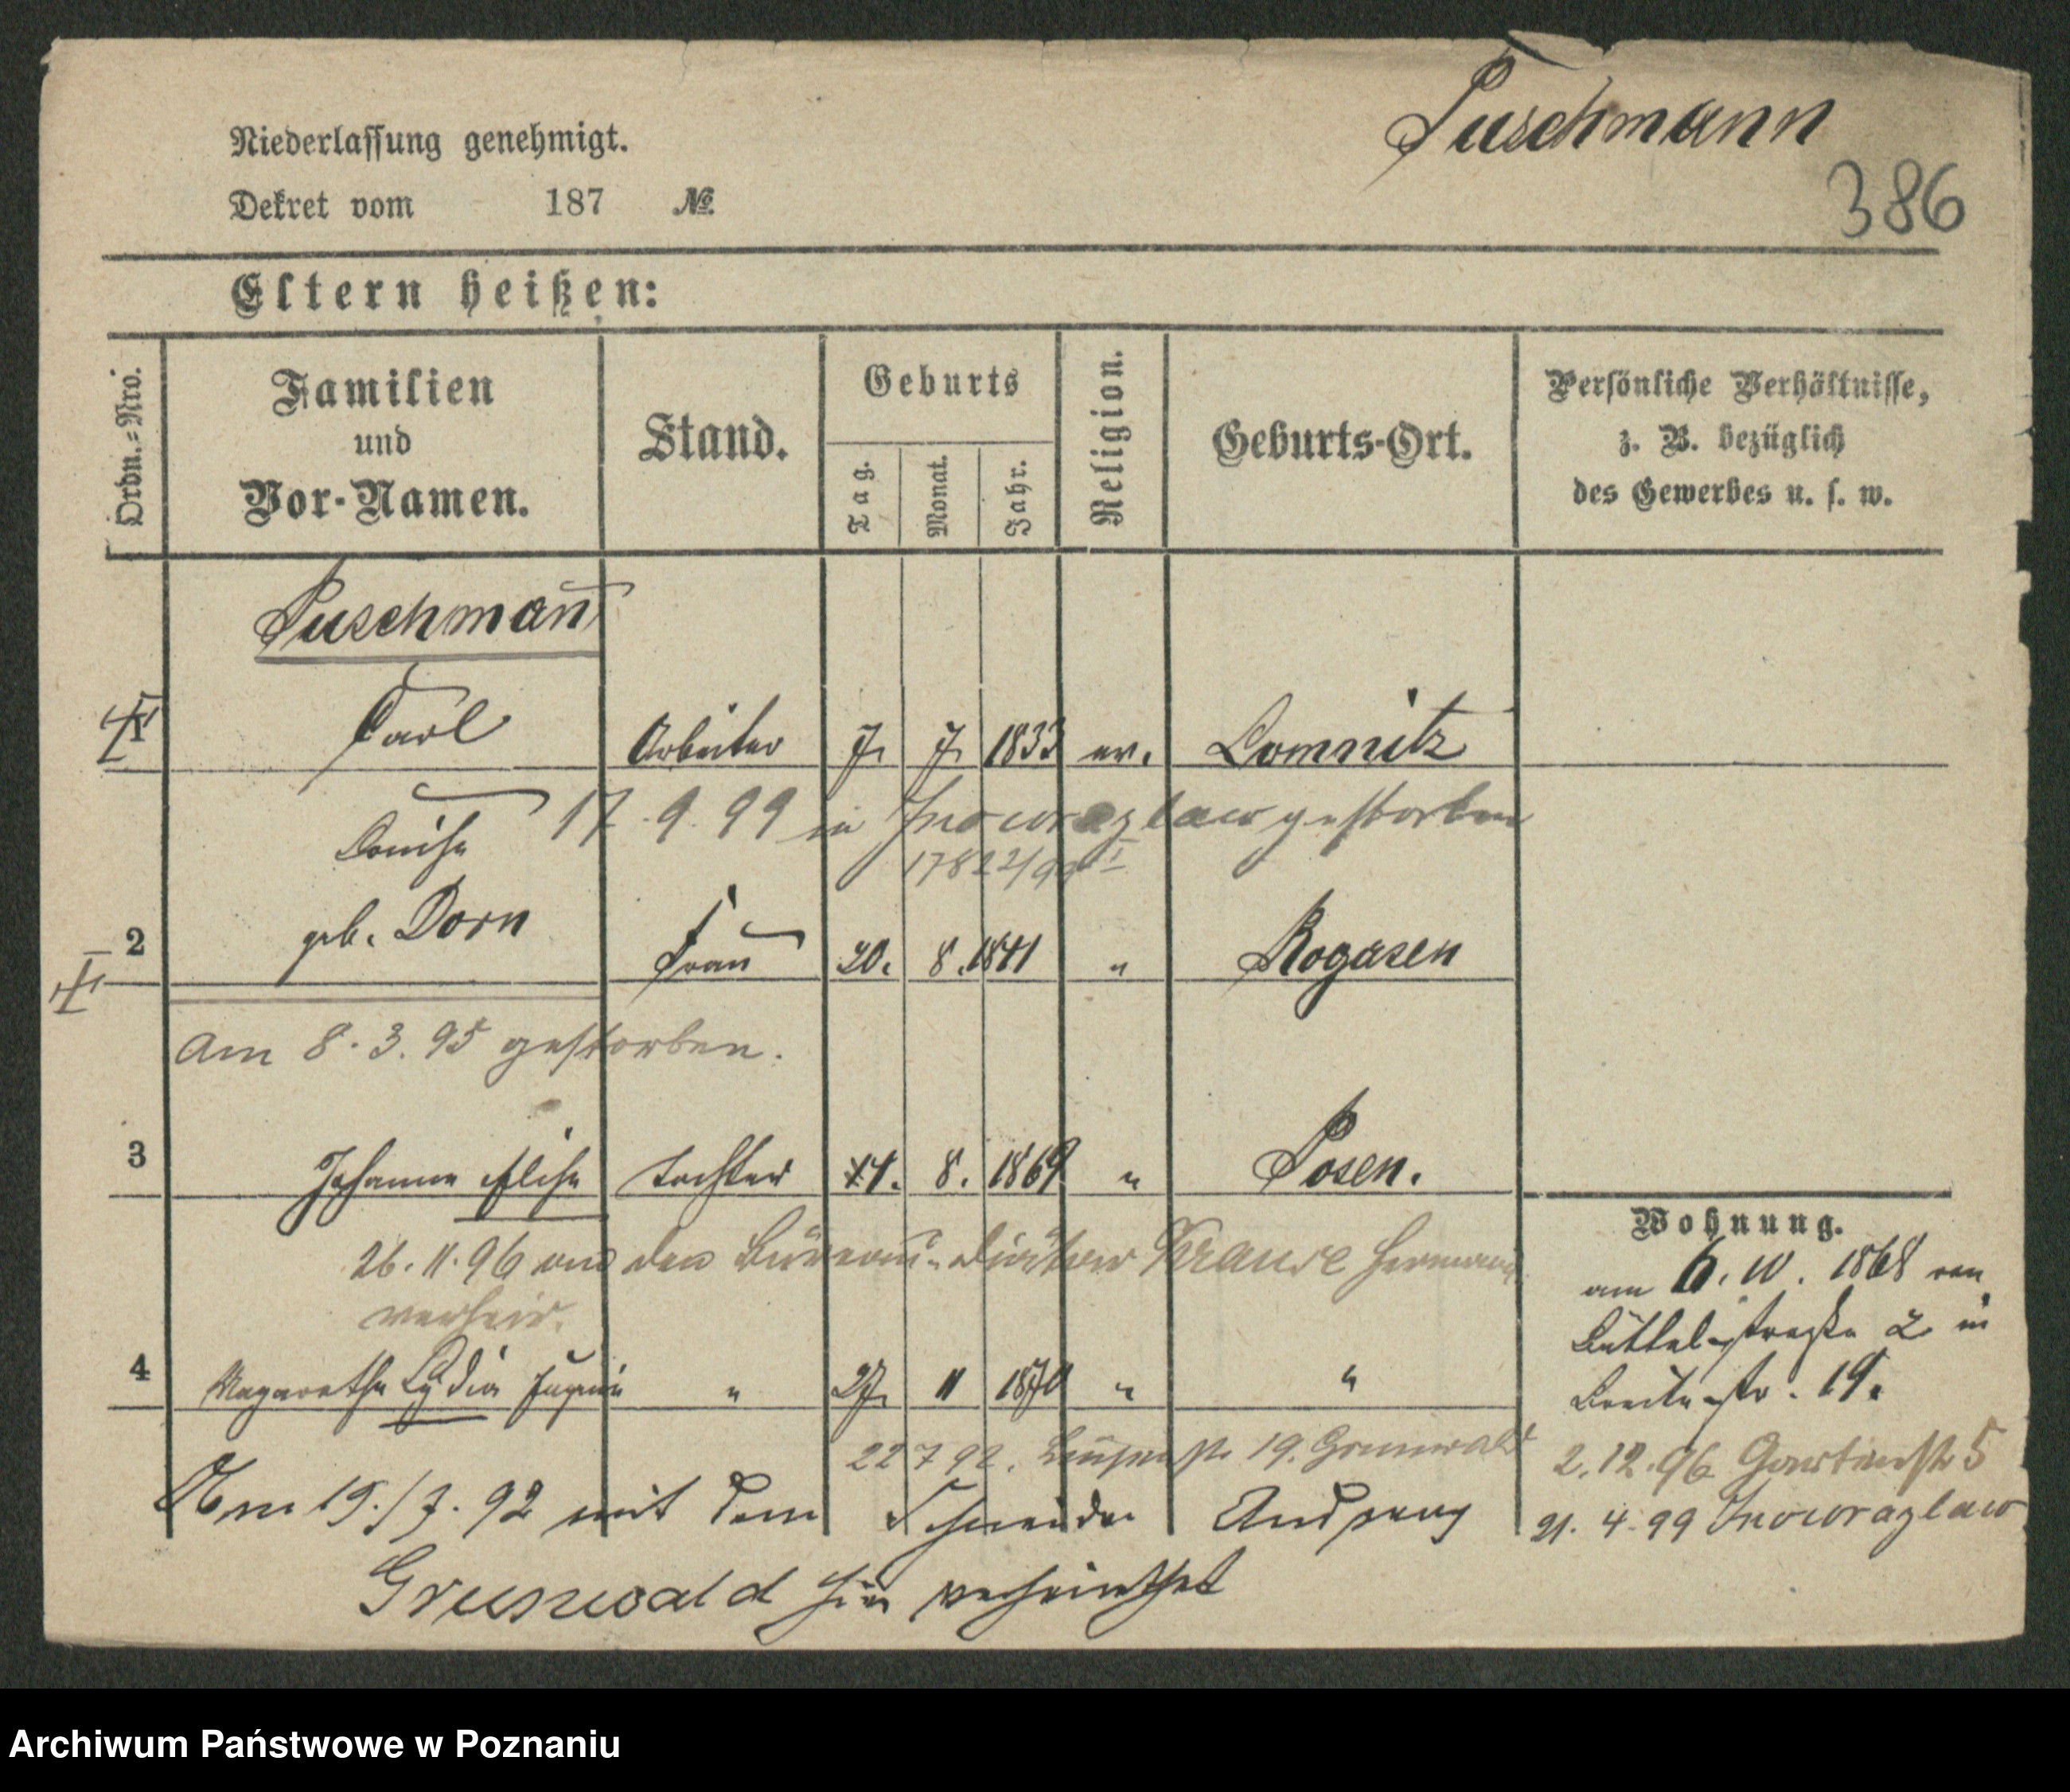 Puschmann
Niederlassung genehmigt.
386
Dekret vom 187 №
Eltern heißen:
Ordn.=Nro.
Familien und Vor-Namen.
Stand.
Geburts
Tag.
Monat.
Jahr.
Religion.
Geburts-Ort.
Persönliche Verhältnisse,
z. B. bezüglich
des Gewerbes u. s. w.
Puschman̅
Carl Arbeiter 7. 7. 1833 ev. Lomnitz
17.9.99 in Inowrazlaw gestorben
Louise
geb. Dorn
2 Frau 20. 8. 1841 " Rogasen
Am 8.3.95 gestorben.
3 Johanne Elise Tochter 8. 1869 " Posen.
26.11.96 an den Bureau-Diätar Krause Hermann
verheir.
4 Magarethe Lydia " 27. 11 1870 " "
22 7 92. 19. Grunwald
Am 19./7. 92 mit dem Schneider
Grunwald hier verheirathet
Wohnung.
am 6. 10. 1868 von
Büttelstraße 2 in
Breitestr. 19.
2.12.96 Gartenstr 5
21.4.99 Inowrazlaw
Archiwum Państwowe w Poznaniu